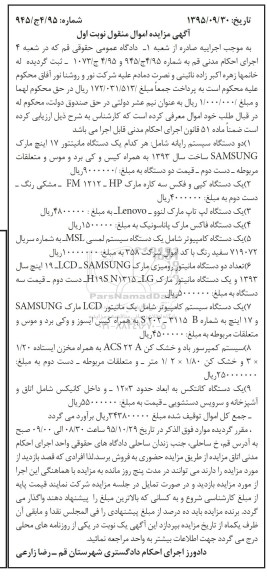 تاریخ: ۱۳۹۵/۰۹/۳۰ شماره: ۹۴۵/ج۴/۹۵
آگهی مزایده اموال منقول نوبت اول
به موجب اجراییه صادره از شعبه ۱ـ دادگاه عمومی حقوقی قم که در شعبه ۴
اجرای احکام مدنی قم به شماره ۹۴۵ج۴/۹۵ و ۴/۹۵ ج/۱۰۷۳ ـ ثبت گردیده له
خانمها زهره اکبر زاده نائینی و نصرت دمادم علیه شرکت نور و روشنا نور آفاق محکوم
علیه محکوم است به پرداخت جمعاً مبلغ ۱۷۲/۰۳۱/۵۱۳/ ریال در حق محکوم لهما
و مبلغ ۱/۰۰۰/۰۰۰ ریال به عنوان نیم عشر دولتی در حق صندوق دولت، محکوم له
در قبال طلب خود اموال معرفی کرده است که کارشناس به شرح ذیل ارزیابی کرده
است ضمناً ماده ۵۱ قانون اجرای احکام مدنی قابل اجرا می باشد
۱)دو دستگاه سیستم رایانه شامل: هر کدام یک دستگاه مانیتور ۱۷ اینچ مارک
SAMSUNG ساخت سال ۱۳۹۳ به همراه کیس و کی برد و موس و متعلقات
مربوطه ـ دست دوم ـ قیمت دو دستگاه به مبلغ/۹۰۰۰۰۰۰ریال
۲)یک دستگاه کپی و فکس سه کاره مارک HP ـ ۱۲۱۲ FM ـ مشکی رنگ ـ
دست دوم به مبلغ: ۴۰۰۰۰۰۰ریال
۳)یک دستگاه لپ تاپ مارک لنوو ـ Lenovo به مبلغ: ۴۸۰۰۰۰۰ریال
۴)یک دستگاه فاکس مارک پاناسونیک به مبلغ: ۱۵۰۰۰۰۰ریال
۵)یک دستگاه کامپیوتر شامل یک دستگاه سیستم لمسی MSLـ به شماره سریال
۷۱۹۰۷۲ سفید رنگ با کد اموال شرکت ۳۵۸ به مبلغ: ۱۰۰۰۰۰۰۰ریال
۶)تعداد دو دستگاه مانیتور رومیزی مارک SAMSUNG ـ LCDـ ۱۹ اینچ سال
۱۳۹۳ و یک دستگاه مانیتور مارک LGـ H۱۹S N۱۳۱۵ـ دست دوم ـ قیمت سه
دستگاه به مبلغ: ۵۰۰۰۰۰۰ریال
۷)یک دستگاه سیستم کامپیوتر شامل یک مانیتور LCD مارک SAMSUNG
و ۱۷ اینچ به شماره S ۲۰۲ـ ۳۱۱۵ B به همراه کیس ایسوز و وکی برد و موس و
متعلقات مربوطه به مبلغ: ۴۵۰۰۰۰۰ریال
۸)سیستم کمپرسور باد و خشک کن ACS ۲۲ A به همراه مخزن ایستاده ۱/۲۰
× ۳ و خشک کن ۱/۸۰ × ۱/۲۰ متر ـ و متعلقات مربوطه ـ دست دوم به مبلغ:
۲۵۰۰۰۰۰۰۰ریال
۹)یک دستگاه کانتکس به ابعاد حدود ۳×۱۲ ـ و داخل کانکیس شامل اتاق و
آشپزخانه و سرویس دستشویی ـ قیمت به مبلغ: ۵۵۰۰۰۰۰۰ریال
ـ جمع کل اموال توقیف شده مبلغ ۳۴۳۸۰۰۰۰۰ریال برآورد می گردد
، مقرر گردیده موارد فوق الذکر در تاریخ ۹۵/۱۰/۲۹ از ساعت ۰۸/۳۰ الی ۰۹/۰۰ صبح
به آدرس قم، خ ساحلی، جنب زندان ساحلی دادگاه های حقوقی واحد اجرای احکام
مدنی اتاق مزایده از طریق مزایده حضوری به فروش برسد.لذا افرادی که قصد بازدید از
مورد مزایده را دارند می توانند در مدت پنج روز مانده به مزایده با هماهنگی این اجرا
از مورد مزایده بازدید و در صورت تمایل در جلسه مزایده شرکت نمایند قیمت پایه
از مبلغ کارشناسی شروع و به کسانی که بالاترین مبلغ را پیشنهاد دهند واگذار می
گردد. برنده مزایده باید ده درصد از مبلغ پیشنهادی را فی المجلس نقدا و مابقی آن
ظرف یکماه از تاریخ مزایده بپردازد این آگهی یک نوبت در یکی از روزنامه های محلی
درج می گردد جهت اطلاعات بیشتر به واحد مراجعه نمائید.
دادورز اجرای احکام دادگستری شهرستان قم ـ رضا زارعی